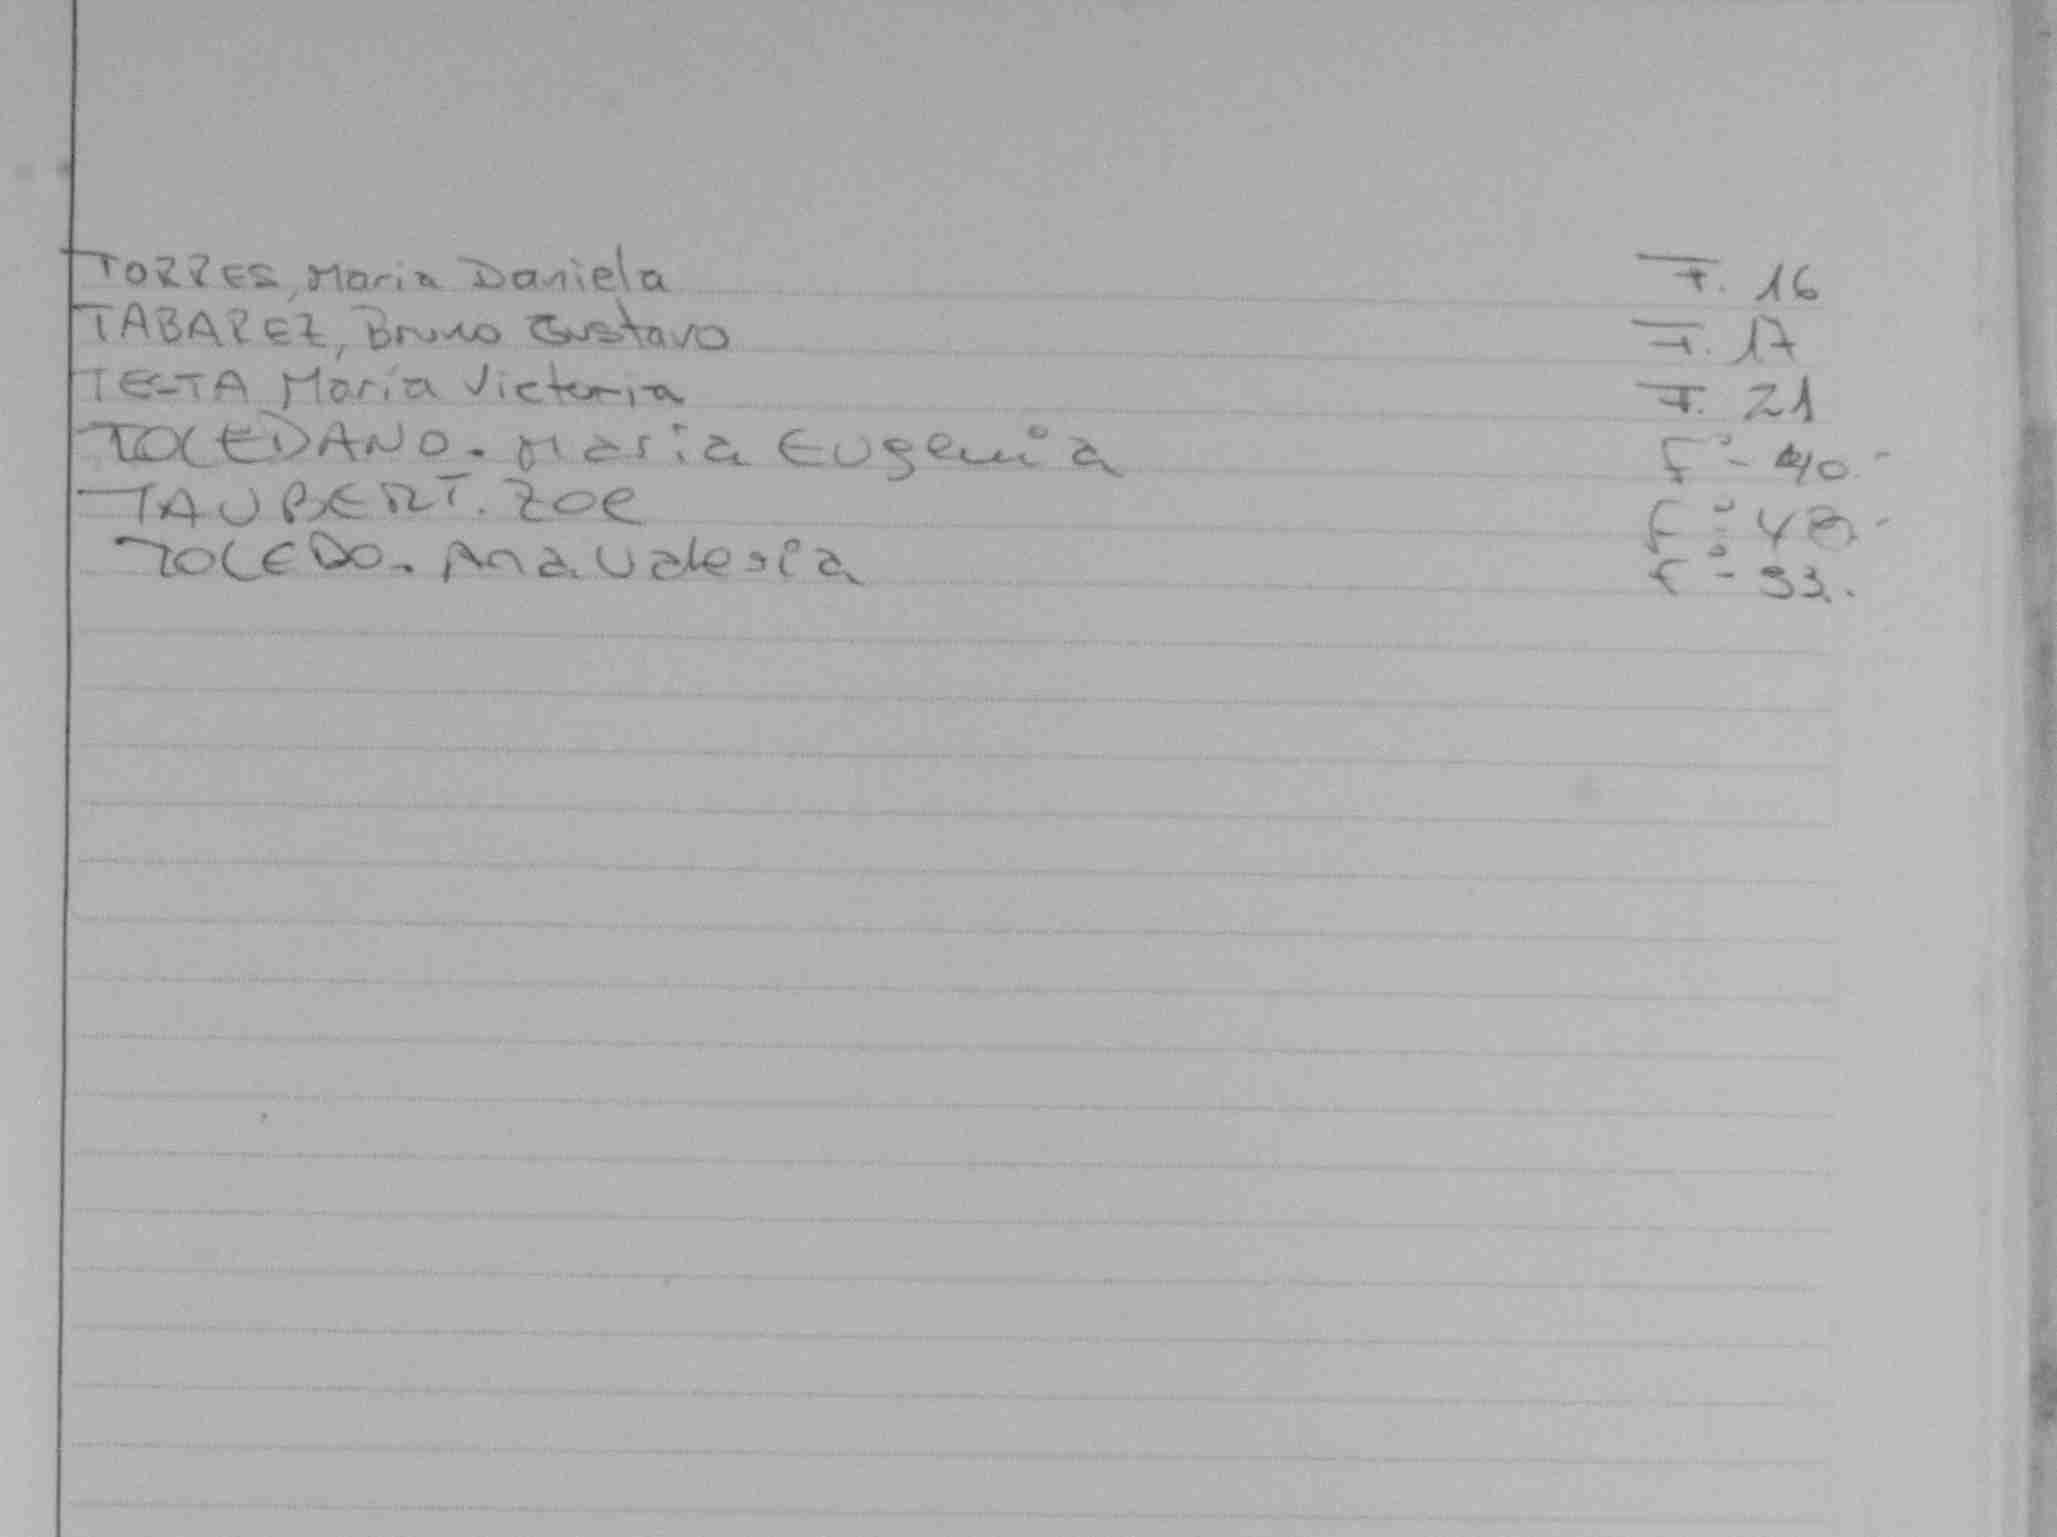 TORRES, Maria Daniela F. 16
TABAREZ, Bruno Gustavo F. 17
TESTA María Victoria F. 21
TOLEDANO. Maria Eugenia Fº- 40.-
TAUBERT. Zoe Fº- 48.-
TOLEDO. Ana Valeria Fº- 93.